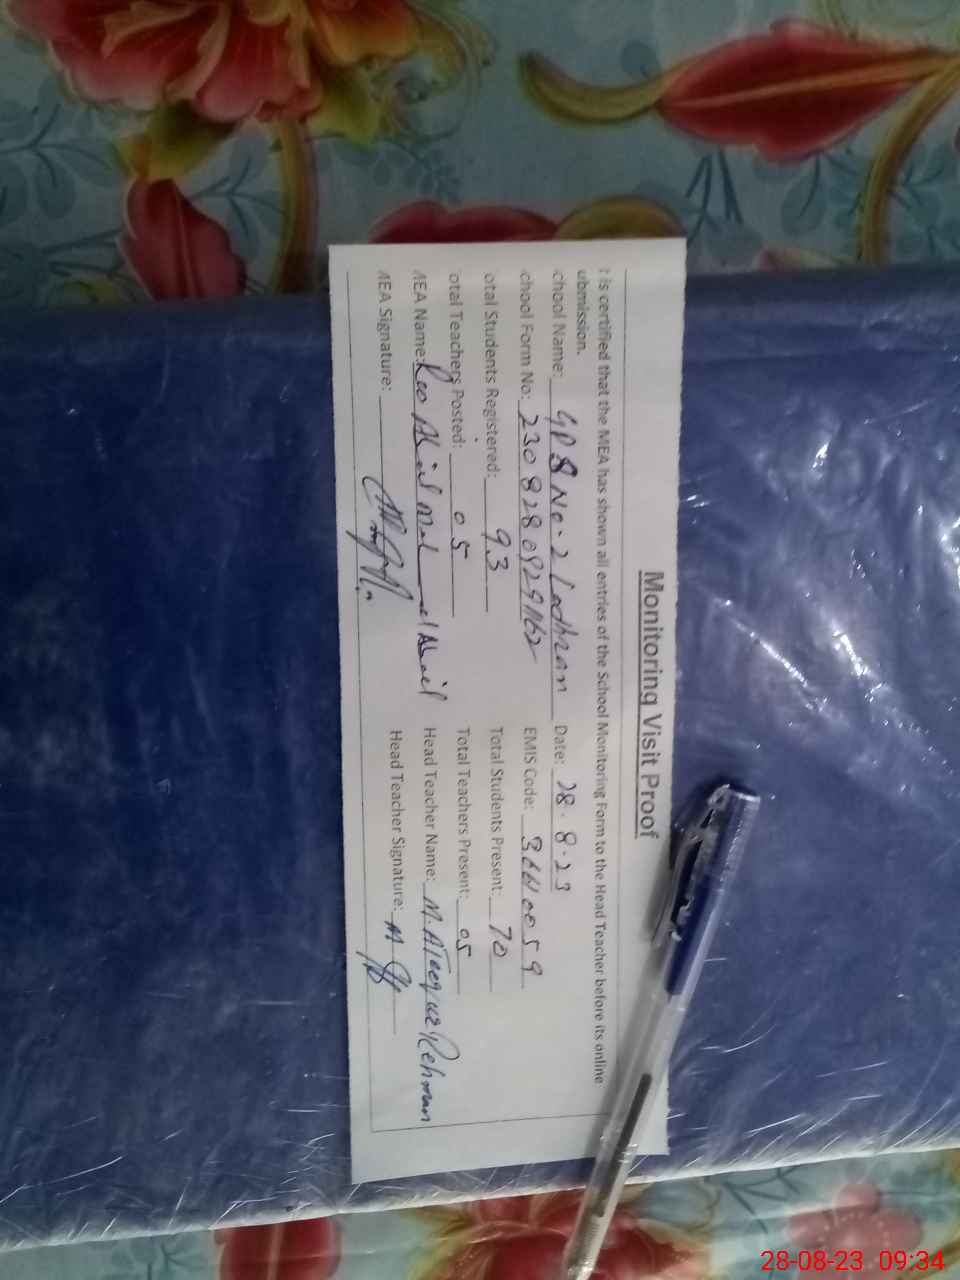 Monitoring Visit Proof
t is certified that the MEA has shown all entries of the School Monitoring Form to the Head Teacher before its online
ubmission.
chool Name: GPS No. 2 Lodhran Date: 28.8.23
chool Form No: EMIS Code:
otal Students Registered: 93 Total Students Present: 70
otal Teachers Posted: 05 Total Teachers Present: 05
MEA Name: Rao Head Teacher Name: M. Ateeq uz Rehman
MEA Signature: Head Teacher Signature:
28-08-23 09:34